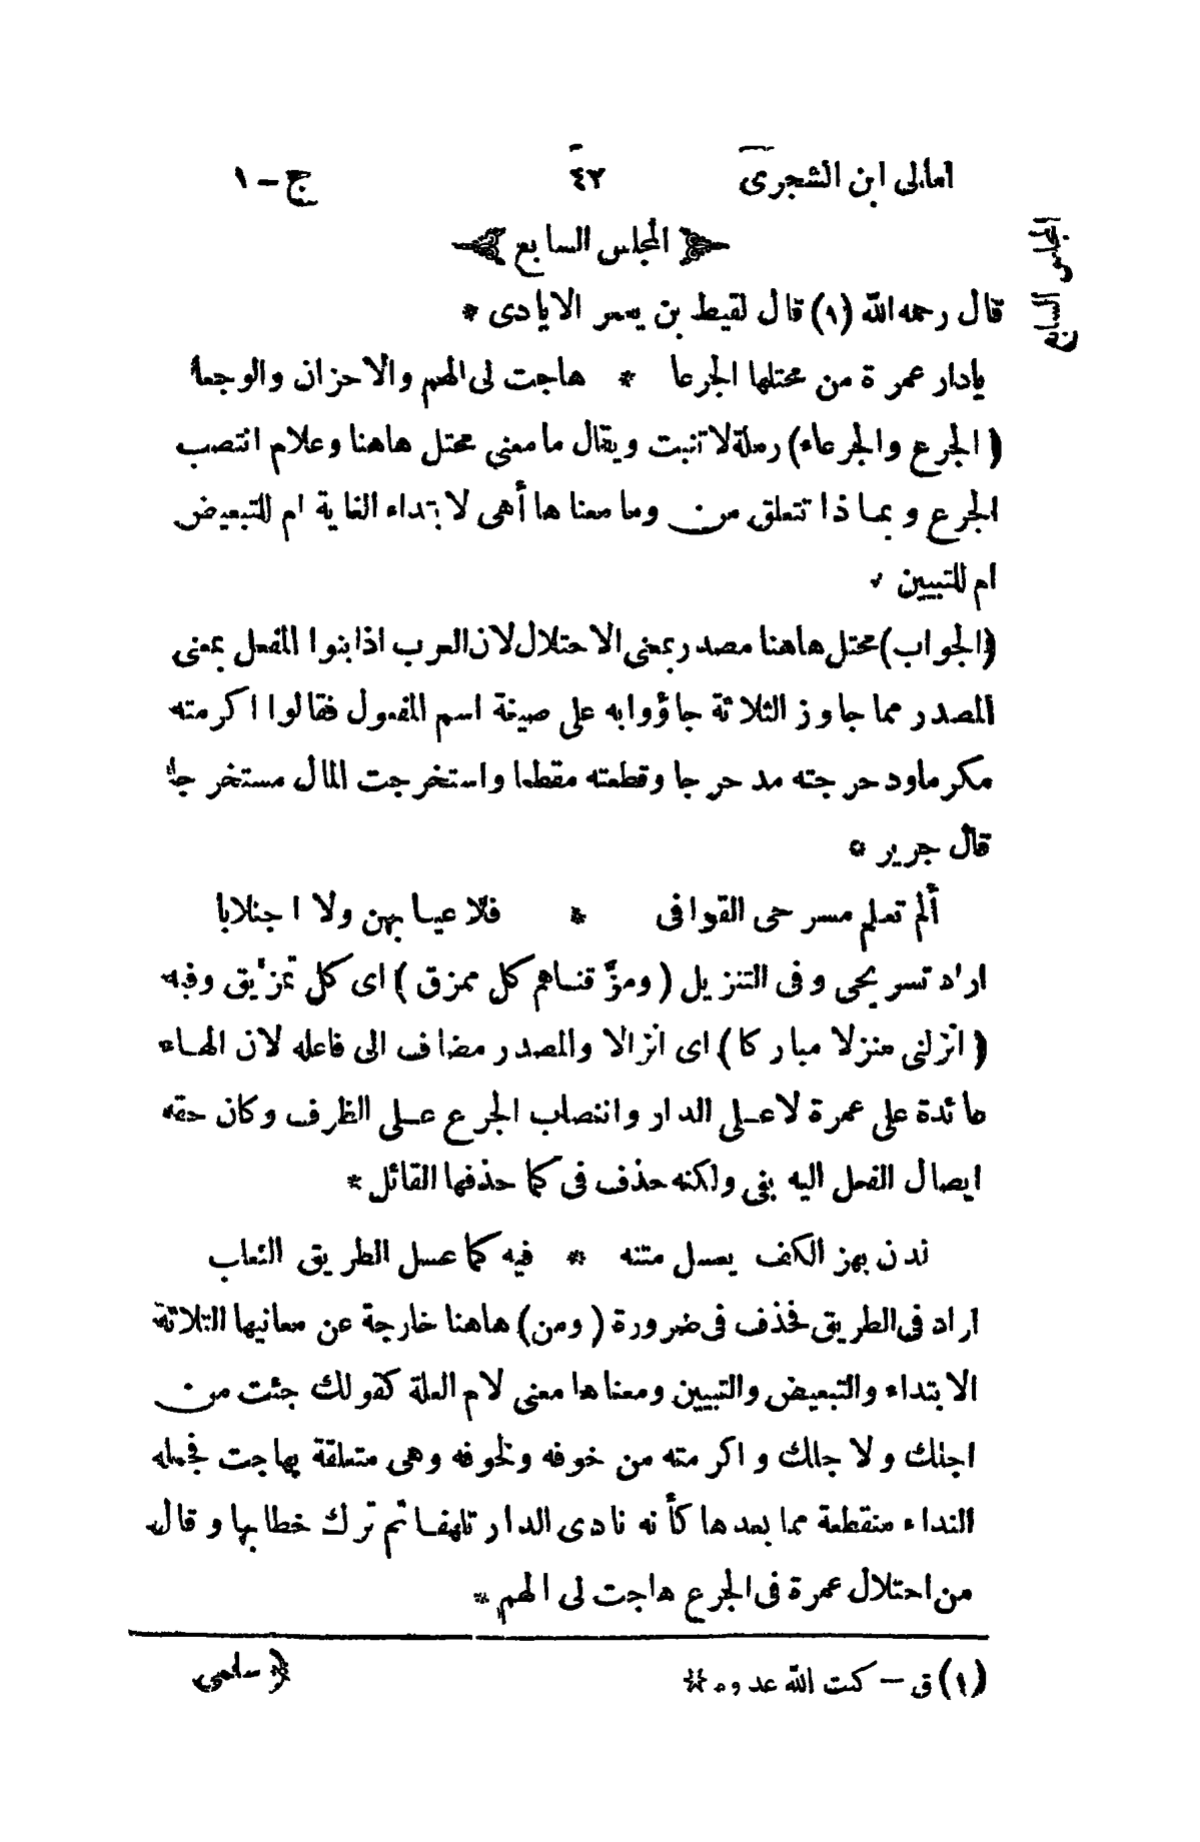 امالى ابن الشجرى ٤٢ ج - ١
المجلس السابع
المجلس السابع
قال رحمه الله (١) قال لقيط بن يعمر الايادى *
يادار عمرة من محتلها الجرعا * هاجت لى الهم والاحزان والوجعا
(الجرع والجرعاء) رملة لا تنبت ويقال ما معنى محتل هاهنا وعلام انتصب
الجرع وبماذا تتعلق من وما معناها أهى لابتداء الغاية ام للتبعيض
ام للتبيين
(الجواب) محتل هاهنا مصدر بمعنى الاحتلال لان العرب اذا بنوا المفعل بمعنى
المصدر مما جاوز الثلاثة جاؤوا به على صيغة اسم المفعول فقالوا اكرمته
مكرما ودحرجته مدحرجا وقطعته مقطعا واستخرجت المال مستخرجا
قال جرير *
ألم تعلم مسرحى القوافى * فلا عيا بهن ولا اجتلابا
اراد تسريحى وفى التنزيل (ومزّقناهم كل ممزق) اى كل تمزيق وفيه
(انزلنى منزلا مباركا) اى انزالا والمصدر مضاف الى فاعله لان الهاء
عائدة على عمرة لا على الدار وانتصاب الجرع على الظرف وكان حقه
ايصال الفعل اليه بفى ولكنه حذف فى كما حذفها القائل *
لدن بهز الكف يعسل متنه * فيه كما عسل الطريق الثعلب
اراد فى الطريق فحذف فى ضرورة (ومن) هاهنا خارجة عن معانيها الثلاثة
الابتداء والتبعيض والتبيين ومعناها معنى لام العلة كقولك جئت من
اجلك ولاجلك واكرمته من خوفه ولخوفه وهى متعلقة بهاجت فجملة
النداء منقطعة مما بعدها كأنه نادى الدار تلهفا ثم ترك خطابها وقال
من احتلال عمرة فى الجرع هاجت لى الهم *
(١) ق - كبت الله عدوه *